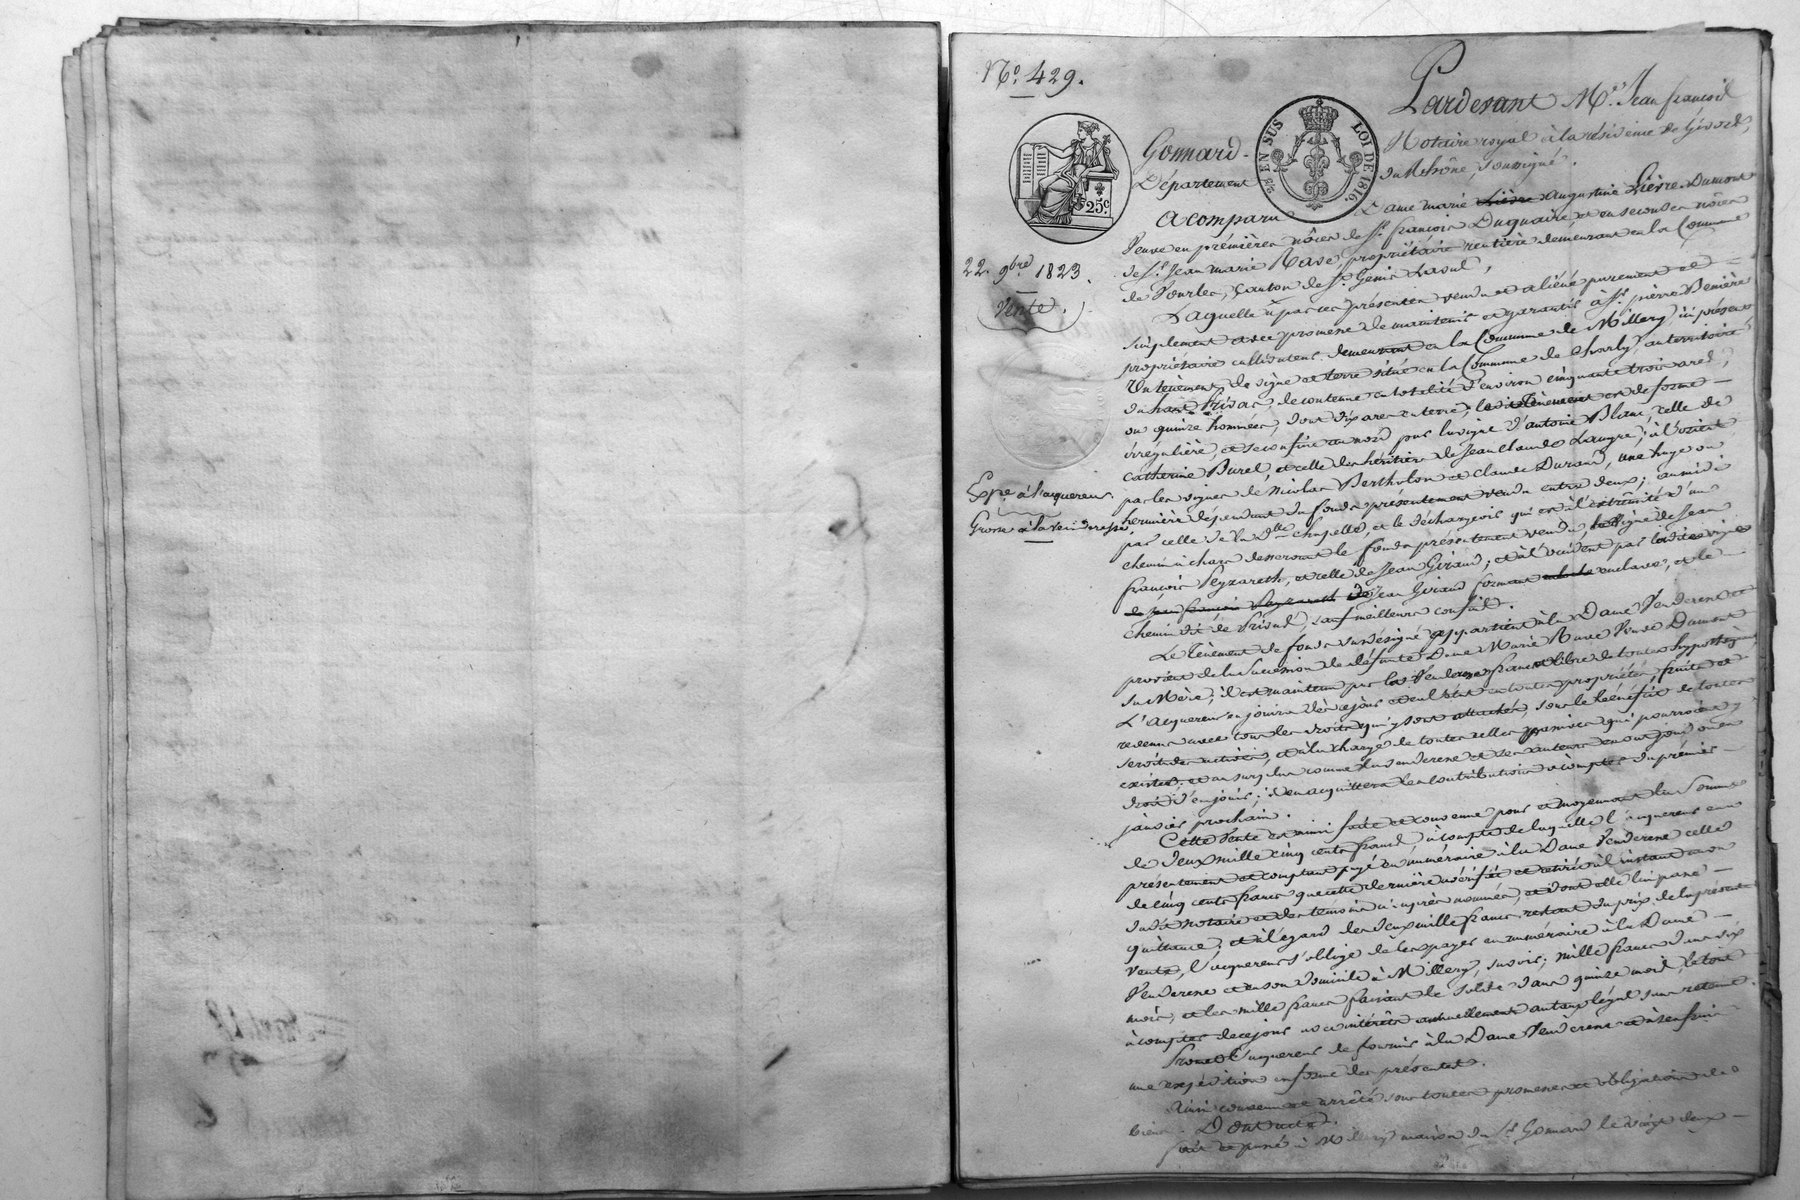 N.º 429.
Pardevant M.e Jean françois
Gonnard. Notaire royal à la résidence de Givors,
Département du Rhône, soussigné.
25 c.
EN SUS
LOI DE 1816
A comparu Dame marie Augustine Lièvre Dumont
Veuve en premières nôces de S.r françois Duquaire et en secondes nôces
de S.r Jean marie Rave, propriétaire rentière demeurant en la Commune
de Vourles, Canton de S.t Genis Laval,
22. 9bre 1823.
Vente.
Laquelle a par ces présentes vendu et aliéné purement et
simplement avec promesse de maintenir et garantir à S.r pierre
propriétaire cultivateur demeurant en la Commune de Millery ici présent
Un tènement de vigne et terre situé en la Commune de Charly, au territoire
de contenue en totalité d'environ cinquante trois ares,
ou quinze hommées, dont dix ares en terre, le dit tènement est de forme
irrégulière, et se confine au nord par la vigne d'antoine Blanc, celle de
Catherine Burel, et celle des héritiers de Jean Claude Laugre; à l'orient
par les vignes de Nicolas Bertholon et Claude Durand, une haye ou
Exp.e à l'acquereur
Grosse à la venderesse
dépendant du fonds présentement vendu entre deux; au midi
par celle de la D.lle Chapelle, et le qui est à l'extrémité d'un
chemin à chars desservant le fonds présentement vendu, la vigne de Jean
françois Peyzareth, et celle de Jean Giraud; et à l'occident par
Jean Giraud formant enclave, et le
chemin dit de sauf meilleurs confins.
Le tènement de fonds sus désigné appartient à la Dame Venderesse
provient de la succession de défunte Dame Marie Rave Veuve Dumont
sa Mère; il est maintenu par la Venderesse franc et libre de toutes hypothèques,
L'acquereur en jouira dès ce jour et en toutes propriétés, fruits et
revenus avec tous les droits qui y sont attachés, sous le bénéfice de toutes
servitudes actives, et à la charge de toutes celles passives qui pourroient y
exister, et au surplus comme la venderesse et ses auteurs en ont joui ou eu
droit d'en jouir; il en acquittera les contributions à compter du premier
janvier prochain.
Cette Vente est ainsi faite et convenue pour et moyennant la Somme
de deux mille cinq cents francs à compte de laquelle l'acquereur en a
présentement et comptant payé en numéraire à la Dame Venderesse celle
de cinq cents francs que cette dernière a vérifiée et retirée à l'instant au vu
du dit notaire et des témoins ci après nommés, et dont elle lui passe
quittance; et à l'égard des deux mille francs restant du prix de la présente
vente, l'acquereur s'oblige de les payer en numéraire à la Dame
Venderesse et en son domicile à Millery, savoir; mille francs dans six
mois, et les mille francs faisant le solde dans quinze mois, le tout
à compter de ce jour avec intérêts annuellement au taux légal sans retenue.
Promet l'acquereur de fournir à la Dame Venderesse et à ses frais
une expédition en forme des présentes.
Ainsi convenu et arrêté sous toutes promesses et obligations de
biens. Dont acte.
fait et passé à Millery maison du S.r Gonnard le vingt deux